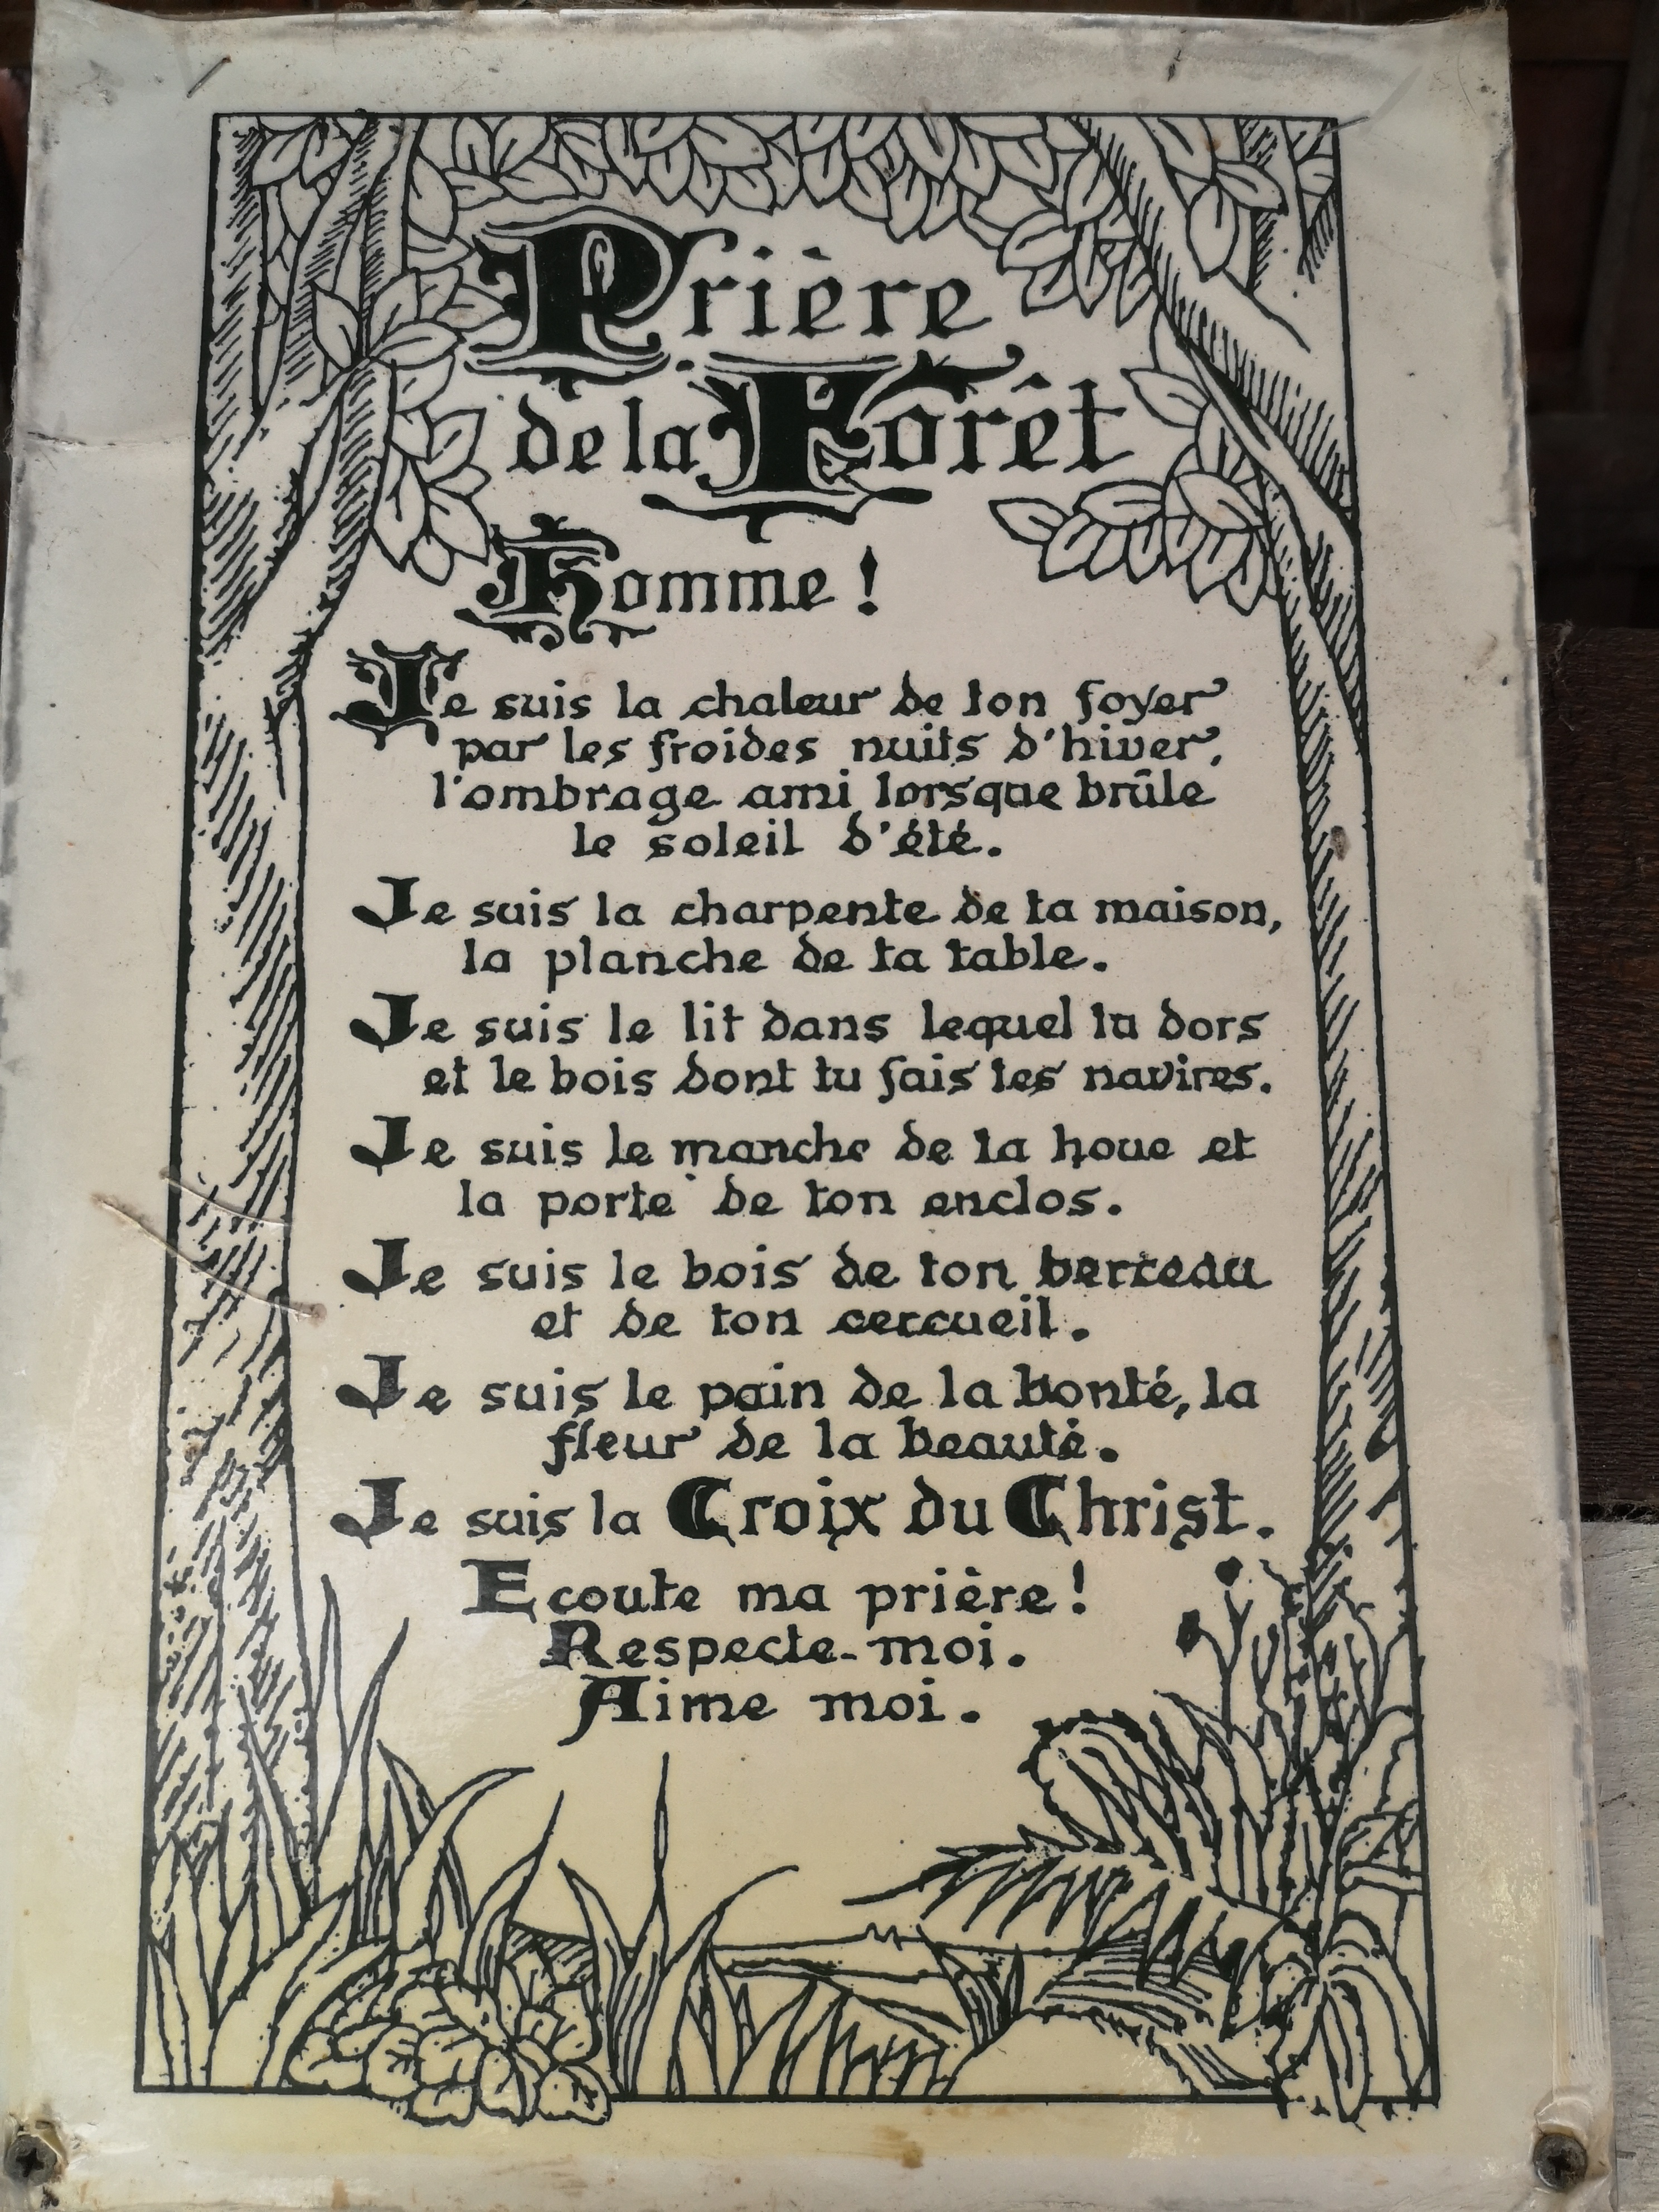 Prière
de la Forêt
Homme !
Je suis la chaleur de ton foyer
par les froides nuits d'hiver,
l'ombrage ami lorsque brûle
le soleil d'été.
Je suis la charpente de ta maison,
la planche de ta table.
Je suis le lit dans lequel tu dors
et le bois dont tu fais tes navires.
Je suis le manche de ta houe et
la porte de ton enclos.
Je suis le bois de ton berceau
et de ton cercueil.
Je suis le pain de la bonté, la
fleur de la beauté.
Je suis la Croix du Christ.
Ecoute ma prière !
Respecte-moi.
Aime moi.